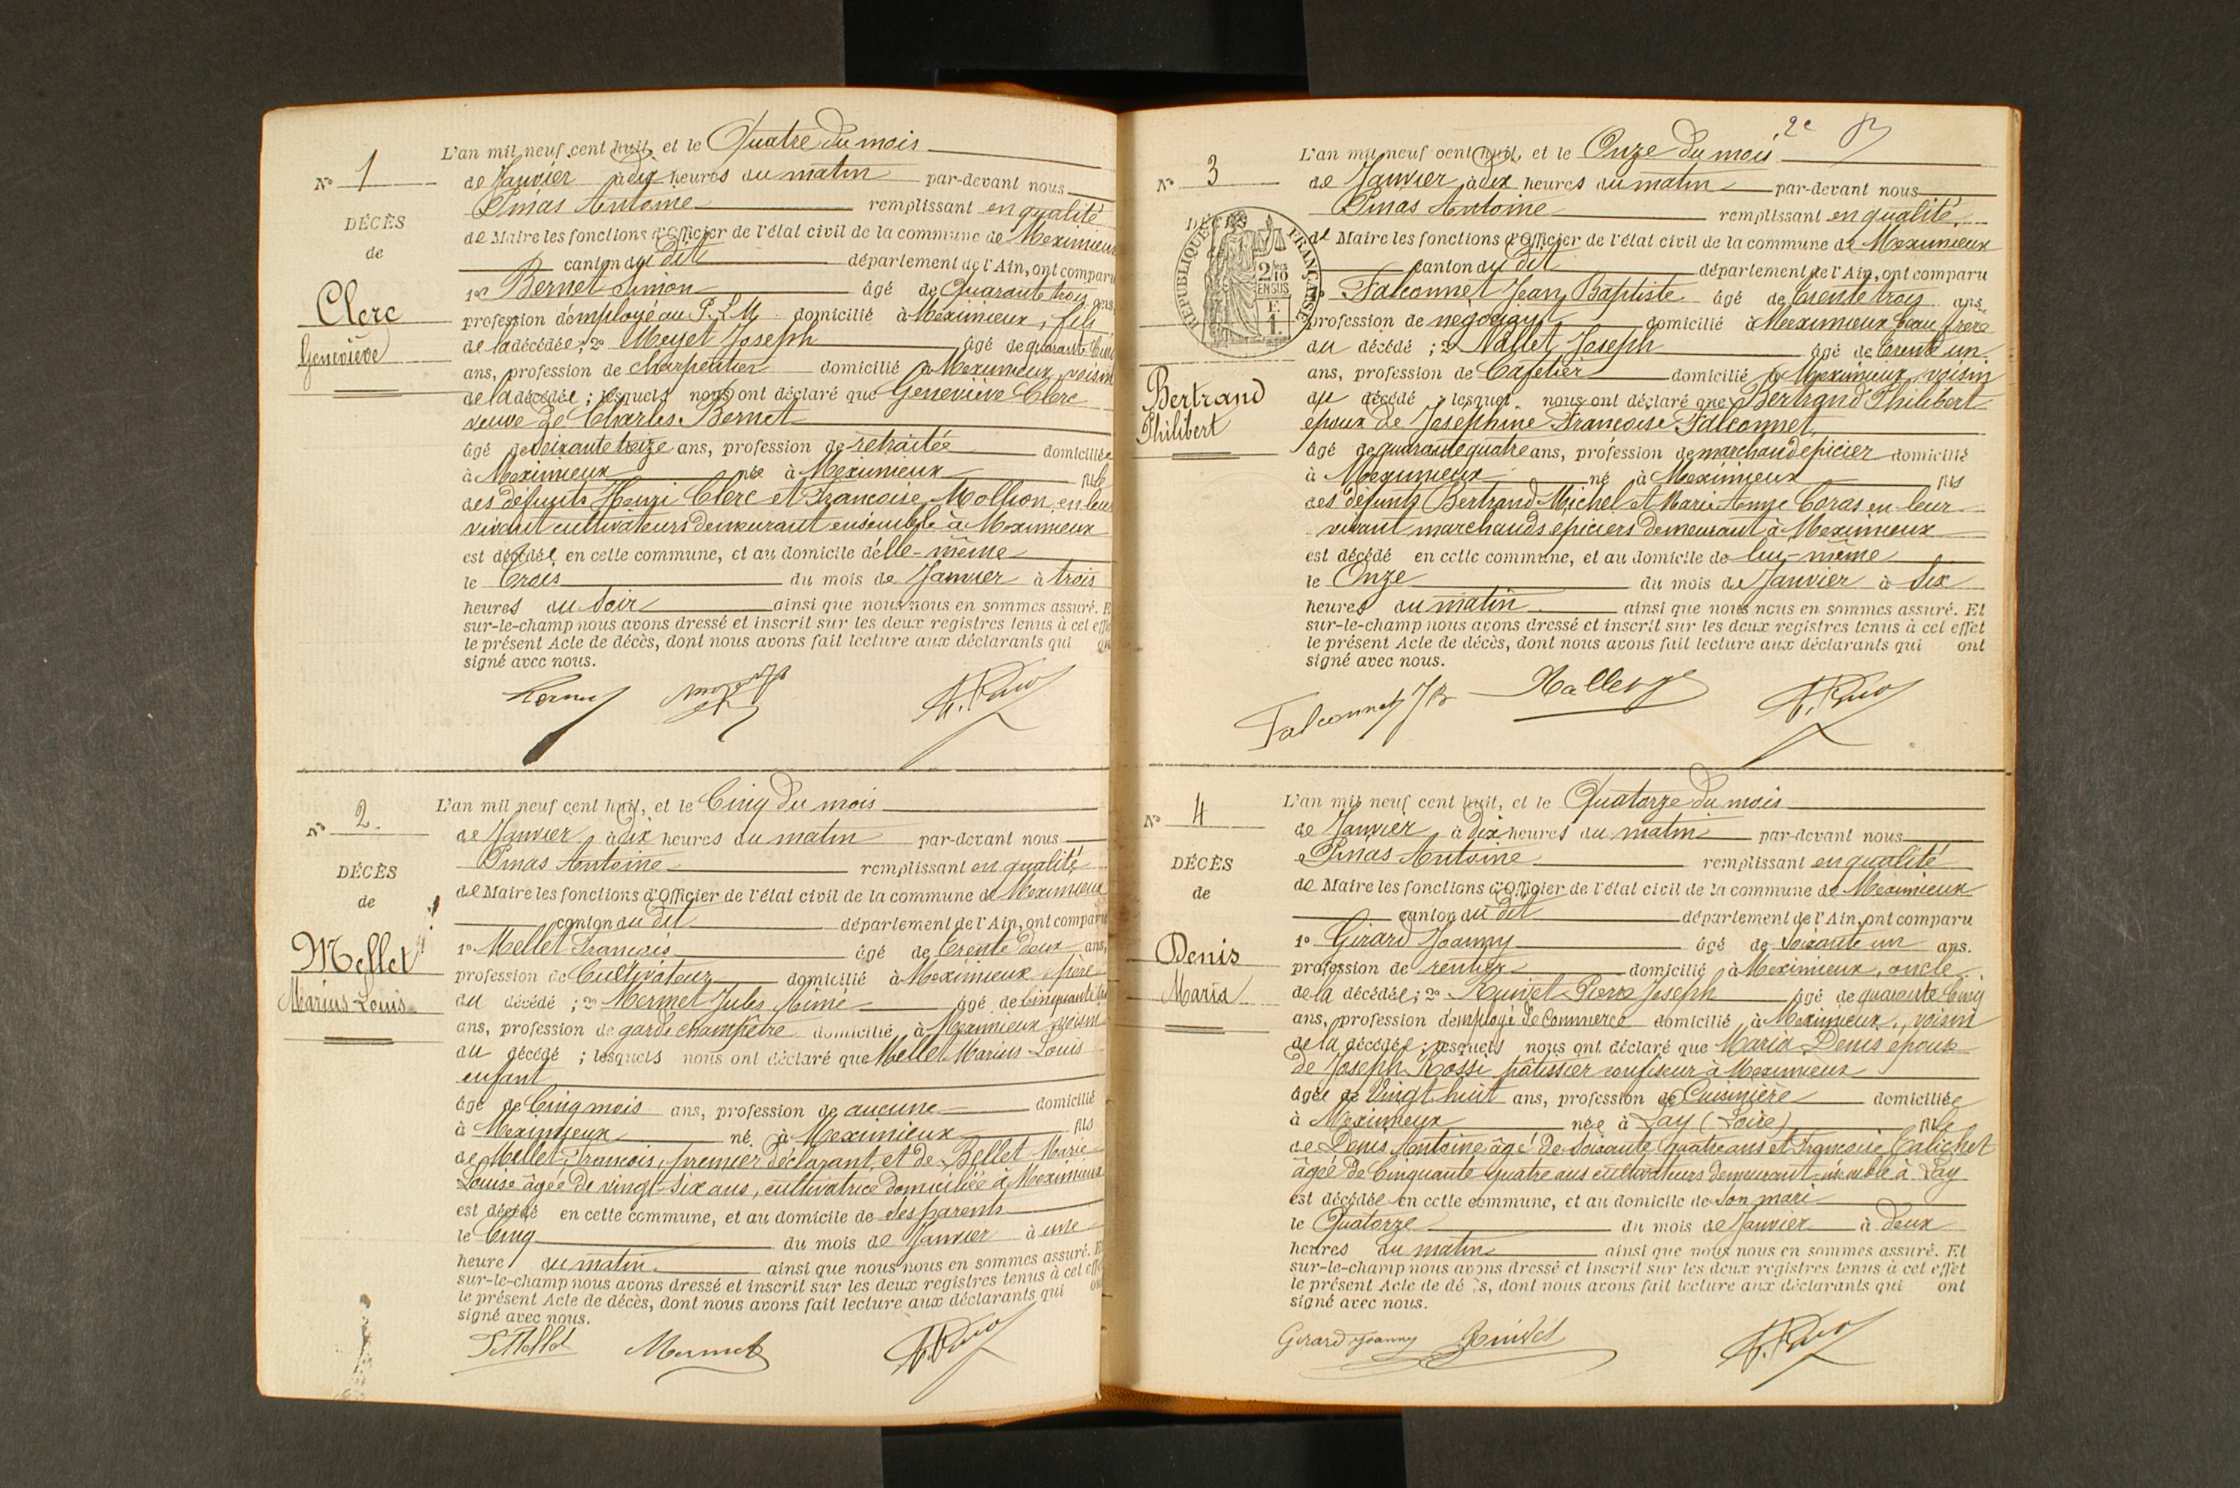 N° 1
DÉCÈS
de
Clerc
Geneviève
L'an mil neuf cent huit, et le Quatre du mois
de Janvier à dix heures du matin par-devant nous
Pinas Antoine remplissant en qualité
de Maire les fonctions d'Officier de l'état civil de la commune de Meximieux
canton du dit département de l'Ain, ont comparu
1° Bernet Simon âgé de Quarante trois ans
profession d'employé au P.L.M. domicilié à Meximieux, fils
de la décédée; 2° Meyet Joseph âgé de quarante
ans, profession de charpentier domicilié à Meximieux, voisin
de la décédée; lesquels nous ont déclaré que Geneviève Clerc
veuve de Charles Bernet
âgé de soixante treize ans, profession de retraitée domiciliée
à Meximieux née à Meximieux fille
des défunts Henri Clerc et Françoise Mollion en leur
vivant cultivateurs demeurant ensemble à Meximieux
est décédée en cette commune, et au domicile d'elle-même
le Trois du mois de Janvier à trois
heures du soir ainsi que nous nous en sommes assuré. E
sur-le-champ nous avons dressé et inscrit sur les deux registres tenus à cet effe
le présent Acte de décès, dont nous avons fait lecture aux déclarants qui
signé avec nous.
N° 2
DÉCÈS
de
Mellet
Marius Louis
L'an mil neuf cent huit, et le Cinq du mois
de Janvier à dix heures du matin par-devant nous
Pinas Antoine remplissant en qualité
de Maire les fonctions d'Officier de l'état civil de la commune de Meximieux
canton du dit département de l'Ain, ont comparu
1° Mellet François âgé de trente deux ans,
profession de Cultivateur domicilié à Meximieux, père
du décédé; 2° Mermet Jules Aimé âgé de Cinquante
ans, profession de garde champêtre domicilié à Meximieux voisin
du décédé; lesquels nous ont déclaré que Mellet Marius Louis
enfant
âgé de Cinq mois ans, profession de aucune domicilié
à Meximieux né à Meximieux fils
de Mellet François, premier déclarant, et de Bellet Marie
Louise âgée de vingt-six ans, cultivatrice domiciliée à Meximieux
est décédé en cette commune, et au domicile de ses parents
le Cinq du mois de Janvier à une
heure du matin ainsi que nous nous en sommes assuré. E
sur-le-champ nous avons dressé et inscrit sur les deux registres tenus à cet effe
le présent Acte de décès, dont nous avons fait lecture aux déclarants qui on
signé avec nous.
Mermet
2e
N° 3
RÉPUBLIQUE FRANÇAISE
2/10 EN SUS
F. 1.
Bertrand
Philibert
L'an mil neuf cent huit, et le Onze du mois
de Janvier à dix heures du matin par-devant nous
Pinas Antoine remplissant en qualité
de Maire les fonctions d'Officier de l'état civil de la commune de Meximieux
canton du dit département de l'Ain, ont comparu
Falconnet Jean Baptiste âgé de trente trois ans
profession de negociant domicilié à Meximieux beau frère
du décédé; 2° Nallet Joseph âgé de trente un
ans, profession de Cafetier domicilié à Meximieux, voisin
du décédé lesquel nous ont déclaré que Bertrand Philibert
époux de Joséphine Françoise Falconnet
âgé de quarante quatre ans, profession de marchand épicier domicilié
à Meximieux né à Meximieux fils
des défunts Bertrand Michel et Marie Ange Coras en leur
vivant marchands epiciers demeurant à Meximieux
est décédé en cette commune, et au domicile de lui-même
le Onze du mois de Janvier à six
heures du matin ainsi que nous nous en sommes assuré. Et
sur-le-champ nous avons dressé et inscrit sur les deux registres tenus à cet effet
le présent Acte de décès, dont nous avons fait lecture aux déclarants qui ont
signé avec nous.
Falconnet JB
N° 4
DÉCÈS
de
Denis
Maria
L'an mil neuf cent huit, et le Quatorze du mois
de Janvier à dix heures du matin par-devant nous
Pinas Antoine remplissant en qualité
de Maire les fonctions d'Officier de l'état civil de la commune de Meximieux
canton du dit département de l'Ain, ont comparu
1° Girard Joanny âgé de soixante un ans.
profession de rentier domicilié à Meximieux, oncle
de la décédée; 2° Ruivet Pierre Joseph âgé de quarante cinq
ans, profession d'employé de Commerce domicilié à Meximieux, voisin
de la décédée; lesquels nous ont déclaré que Maria Denis épouse
de Joseph Rossi pâtissier confiseur à Meximieux
âgée de Vingt huit ans, profession de Cuisinière domiciliée
à Meximieux née à Lay (Loire) fille
de Denis Antoine âgé de soixante quatre ans et Françoise Catichet
âgée de Cinquante quatre ans cultivateurs demeurant ensemble à Lay
est décédée en cette commune, et au domicile de son mari
le Quatorze du mois de Janvier à deux
heures du matin ainsi que nous nous en sommes assuré. Et
sur-le-champ nous avons dressé et inscrit sur les deux registres tenus à cet effet
le présent Acte de dé s, dont nous avons fait lecture aux déclarants qui ont
signé avec nous.
Girard Joanny Ruivet